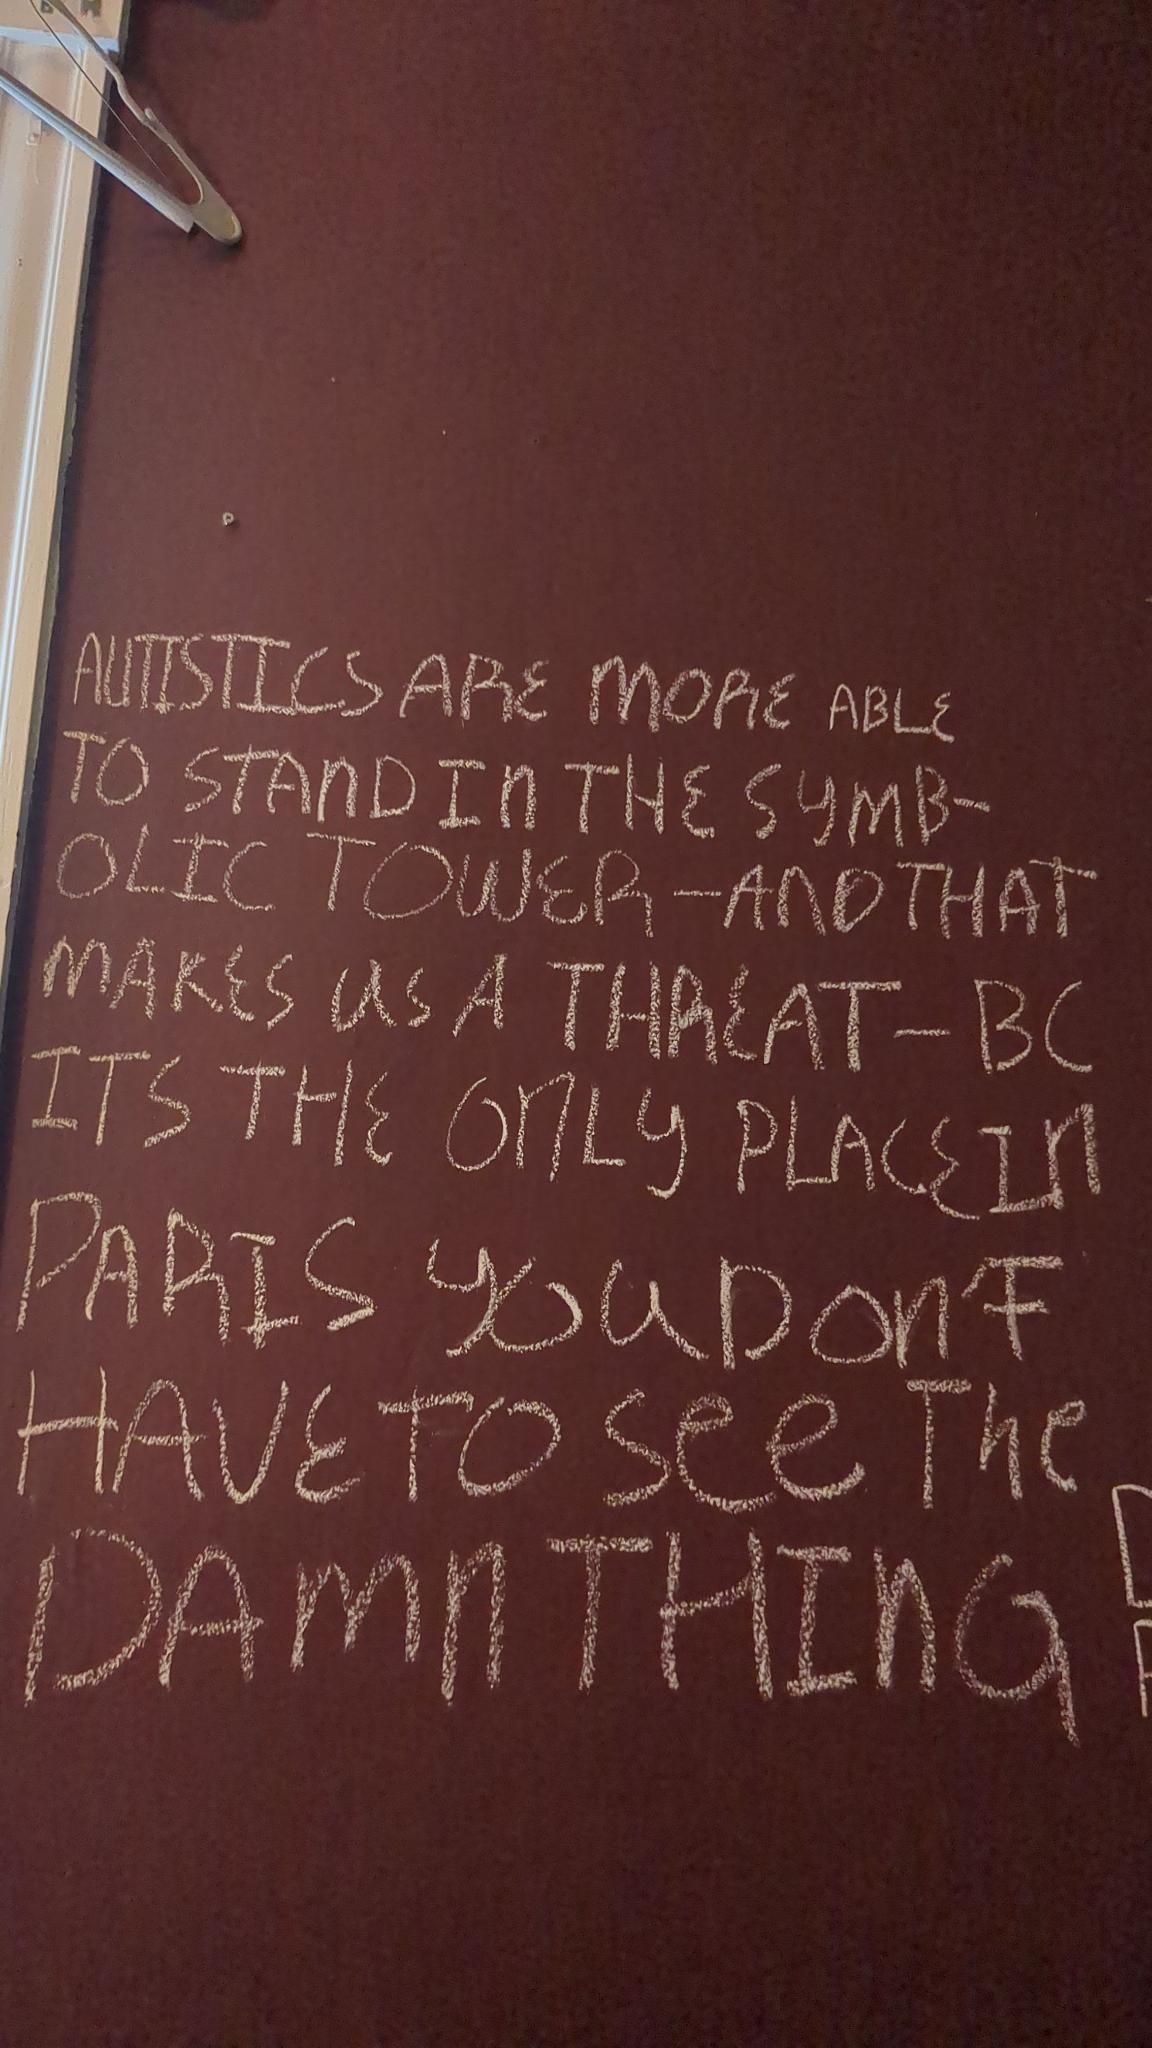 AUTISTICS ARE MORE ABLE
TO STAND IN THE SYMB-
OLIC TOWER - AND THAT
MAKES US A THREAT - BC
ITS THE ONLY PLACE IN
PARIS YOU DON'T
HAVE TO SEE THE
DAMN THING